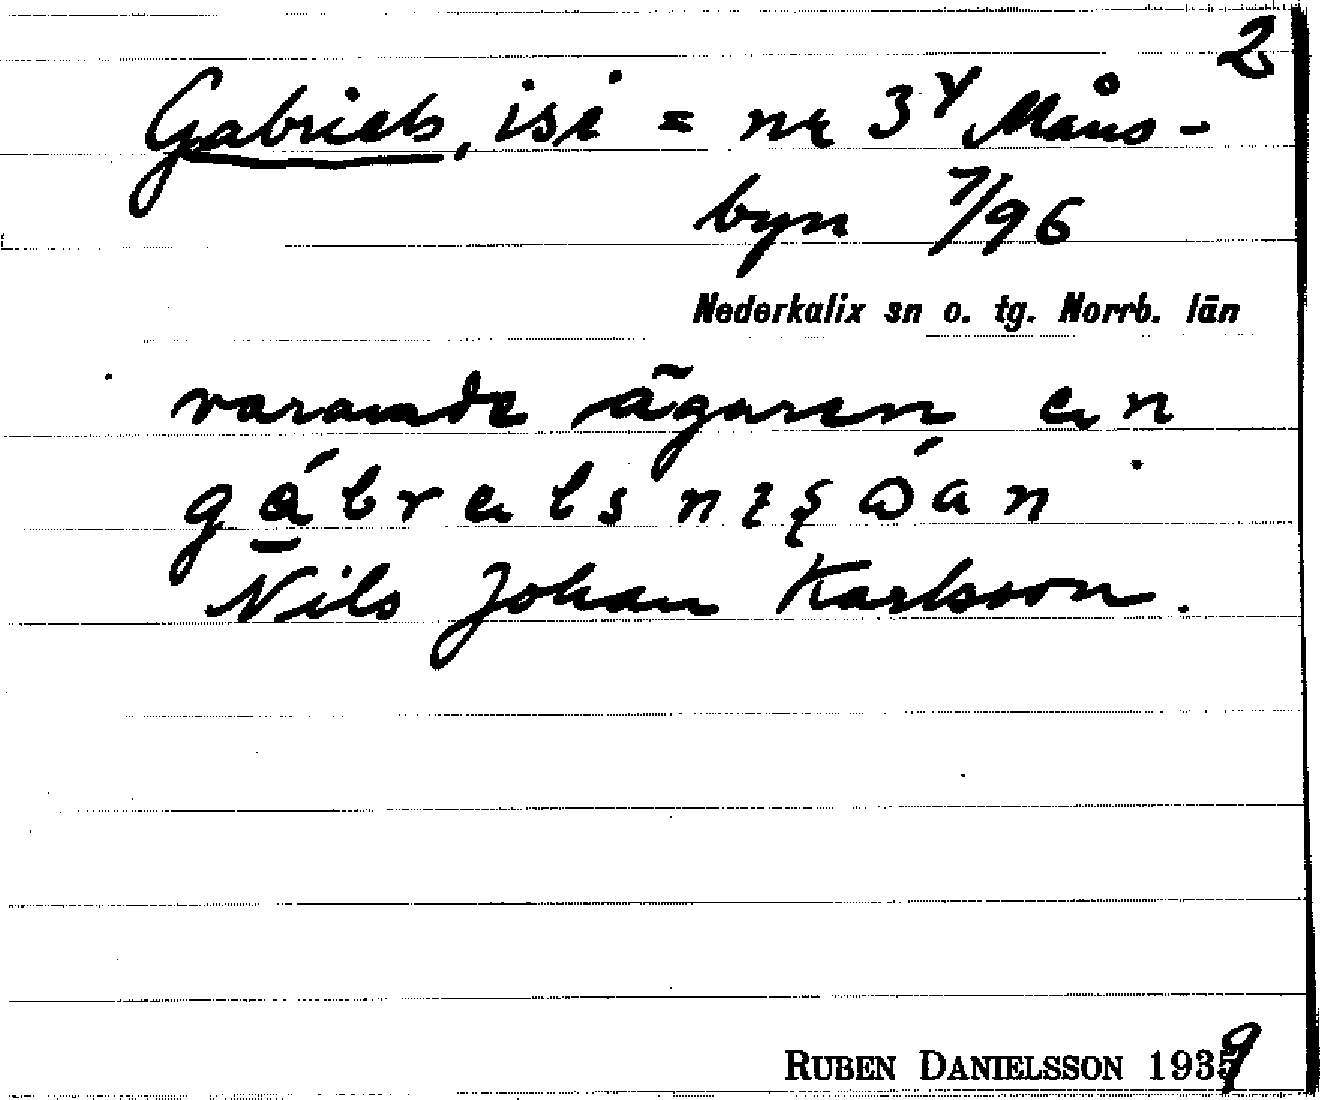 2
Gabriels, isi = nr 3⁴ Måns-
byn 7/96
Nederkalix sn o. tg. Norrb. län
varande ägaren en
Nils Johan Karlsson.
RUBEN DANIELSSON 1939